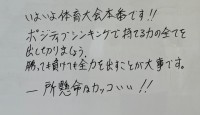 いよいよ体育大会本番です!!
ポジティブシンキングで持てる力の全てを
出してがりましょう。
勝っても負けても全力を出すことが大事です。
一所懸命はカッコいい!!